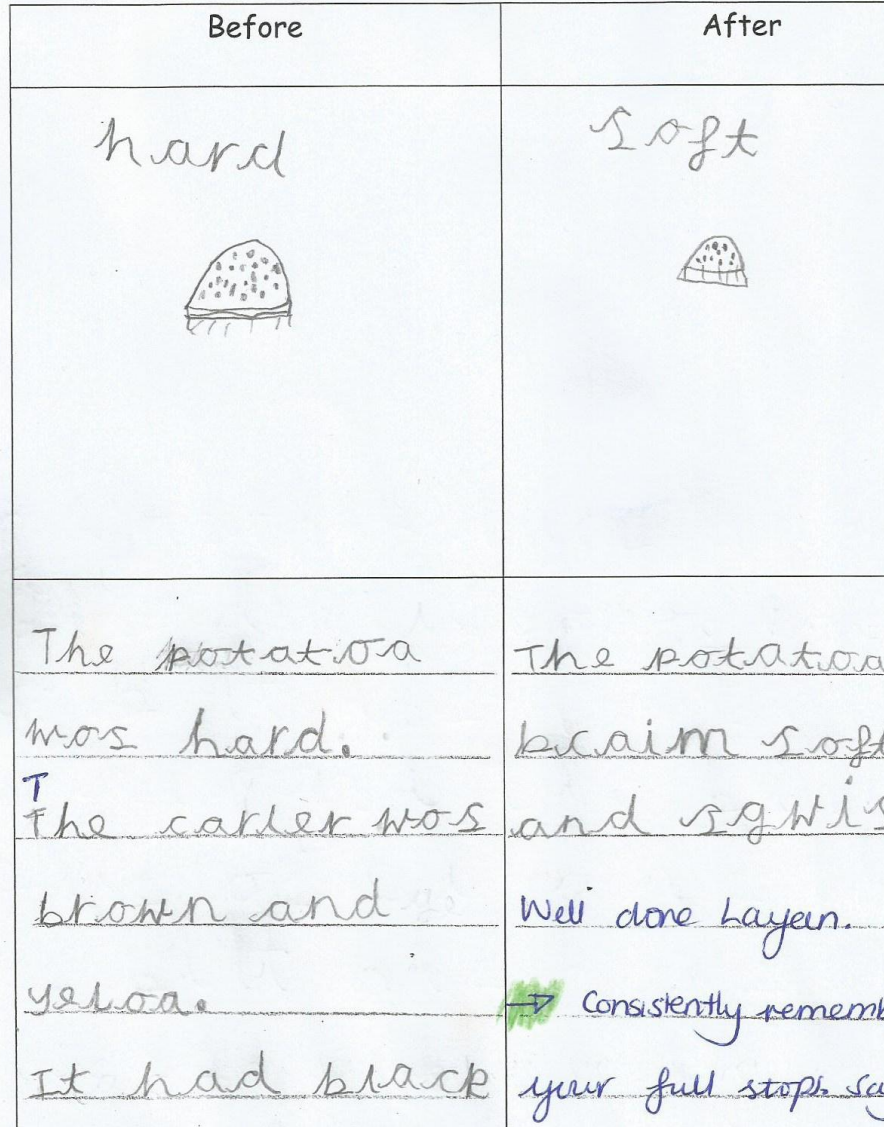 Before
After
hard
soft
The potatoa
was hard.
T
The carler wos
brown and
yeloa.
It had black
The potatoa
bcaim soft
and sqwis
Well done Layean.
→ Consistently rememb
your full stops. say